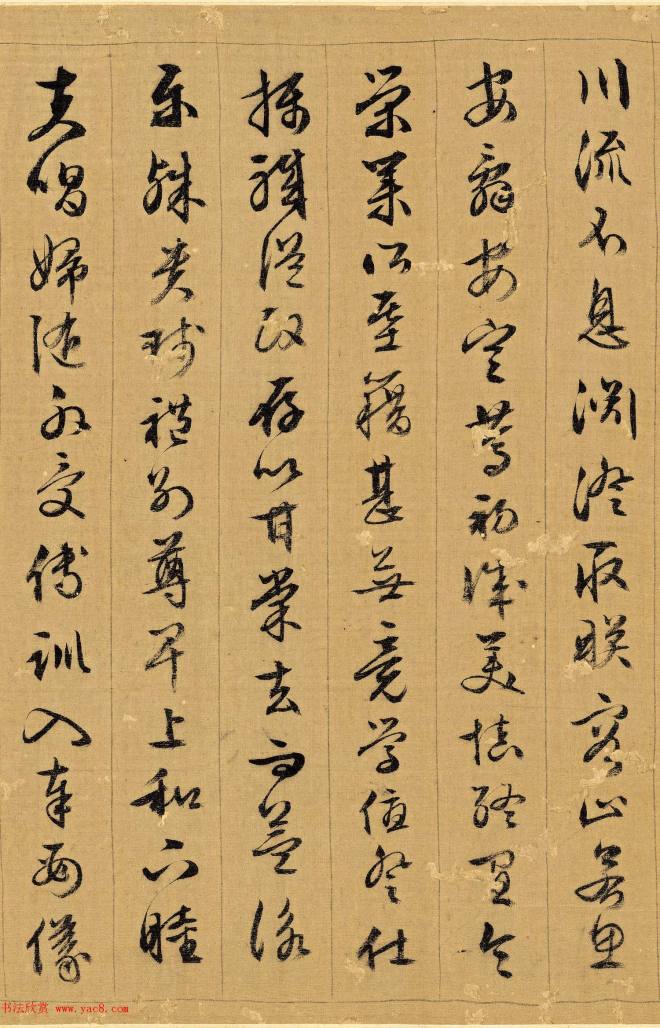 川流不息渊澄取暎容止若思
安辭安定篤初誠美慎終宜令
榮業所基籍甚無竟學優登仕
攝職從政存以甘棠去而益詠
樂殊貴賤禮別尊卑上和下睦
夫唱婦隨外受傅訓入奉母儀
书法欣赏 www.yac8.com